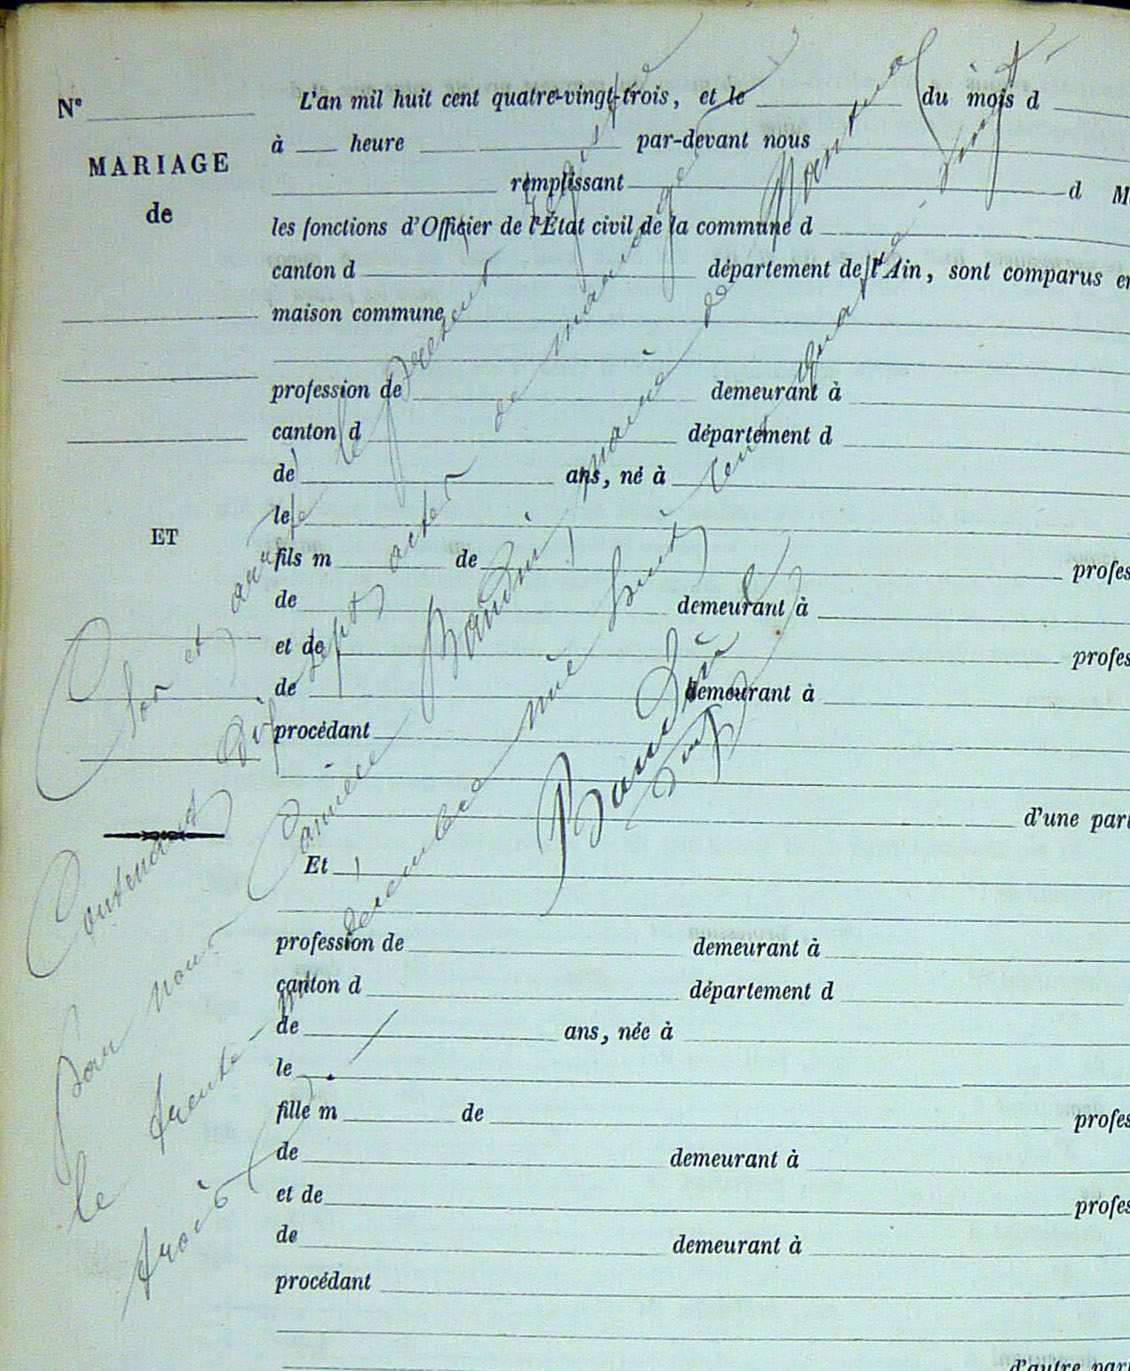 N°
MARIAGE
de
ET
L'an mil huit cent quatre-vingt-trois, et le du mois d
à heure par-devant nous
remplissant d M
les fonctions d'Officier de l'État civil de la commune d
canton d département de l'Ain, sont comparus en
maison commune
profession de demeurant à
canton d département d
de ans, né à
le
fils m de profes
de demeurant à
et de profes
de demeurant à
procédant
d'une part
Et
profession de demeurant à
canton d département d
de ans, née à
le
fille m de profes
de demeurant à
et de profes
de demeurant à
procédant
d'autre part
Clos et arrêté le présent registre
Contenant dix sept actes de mariage
par nous maire de Nantua
le trente décembre mil huit cent quatre vingt
trois